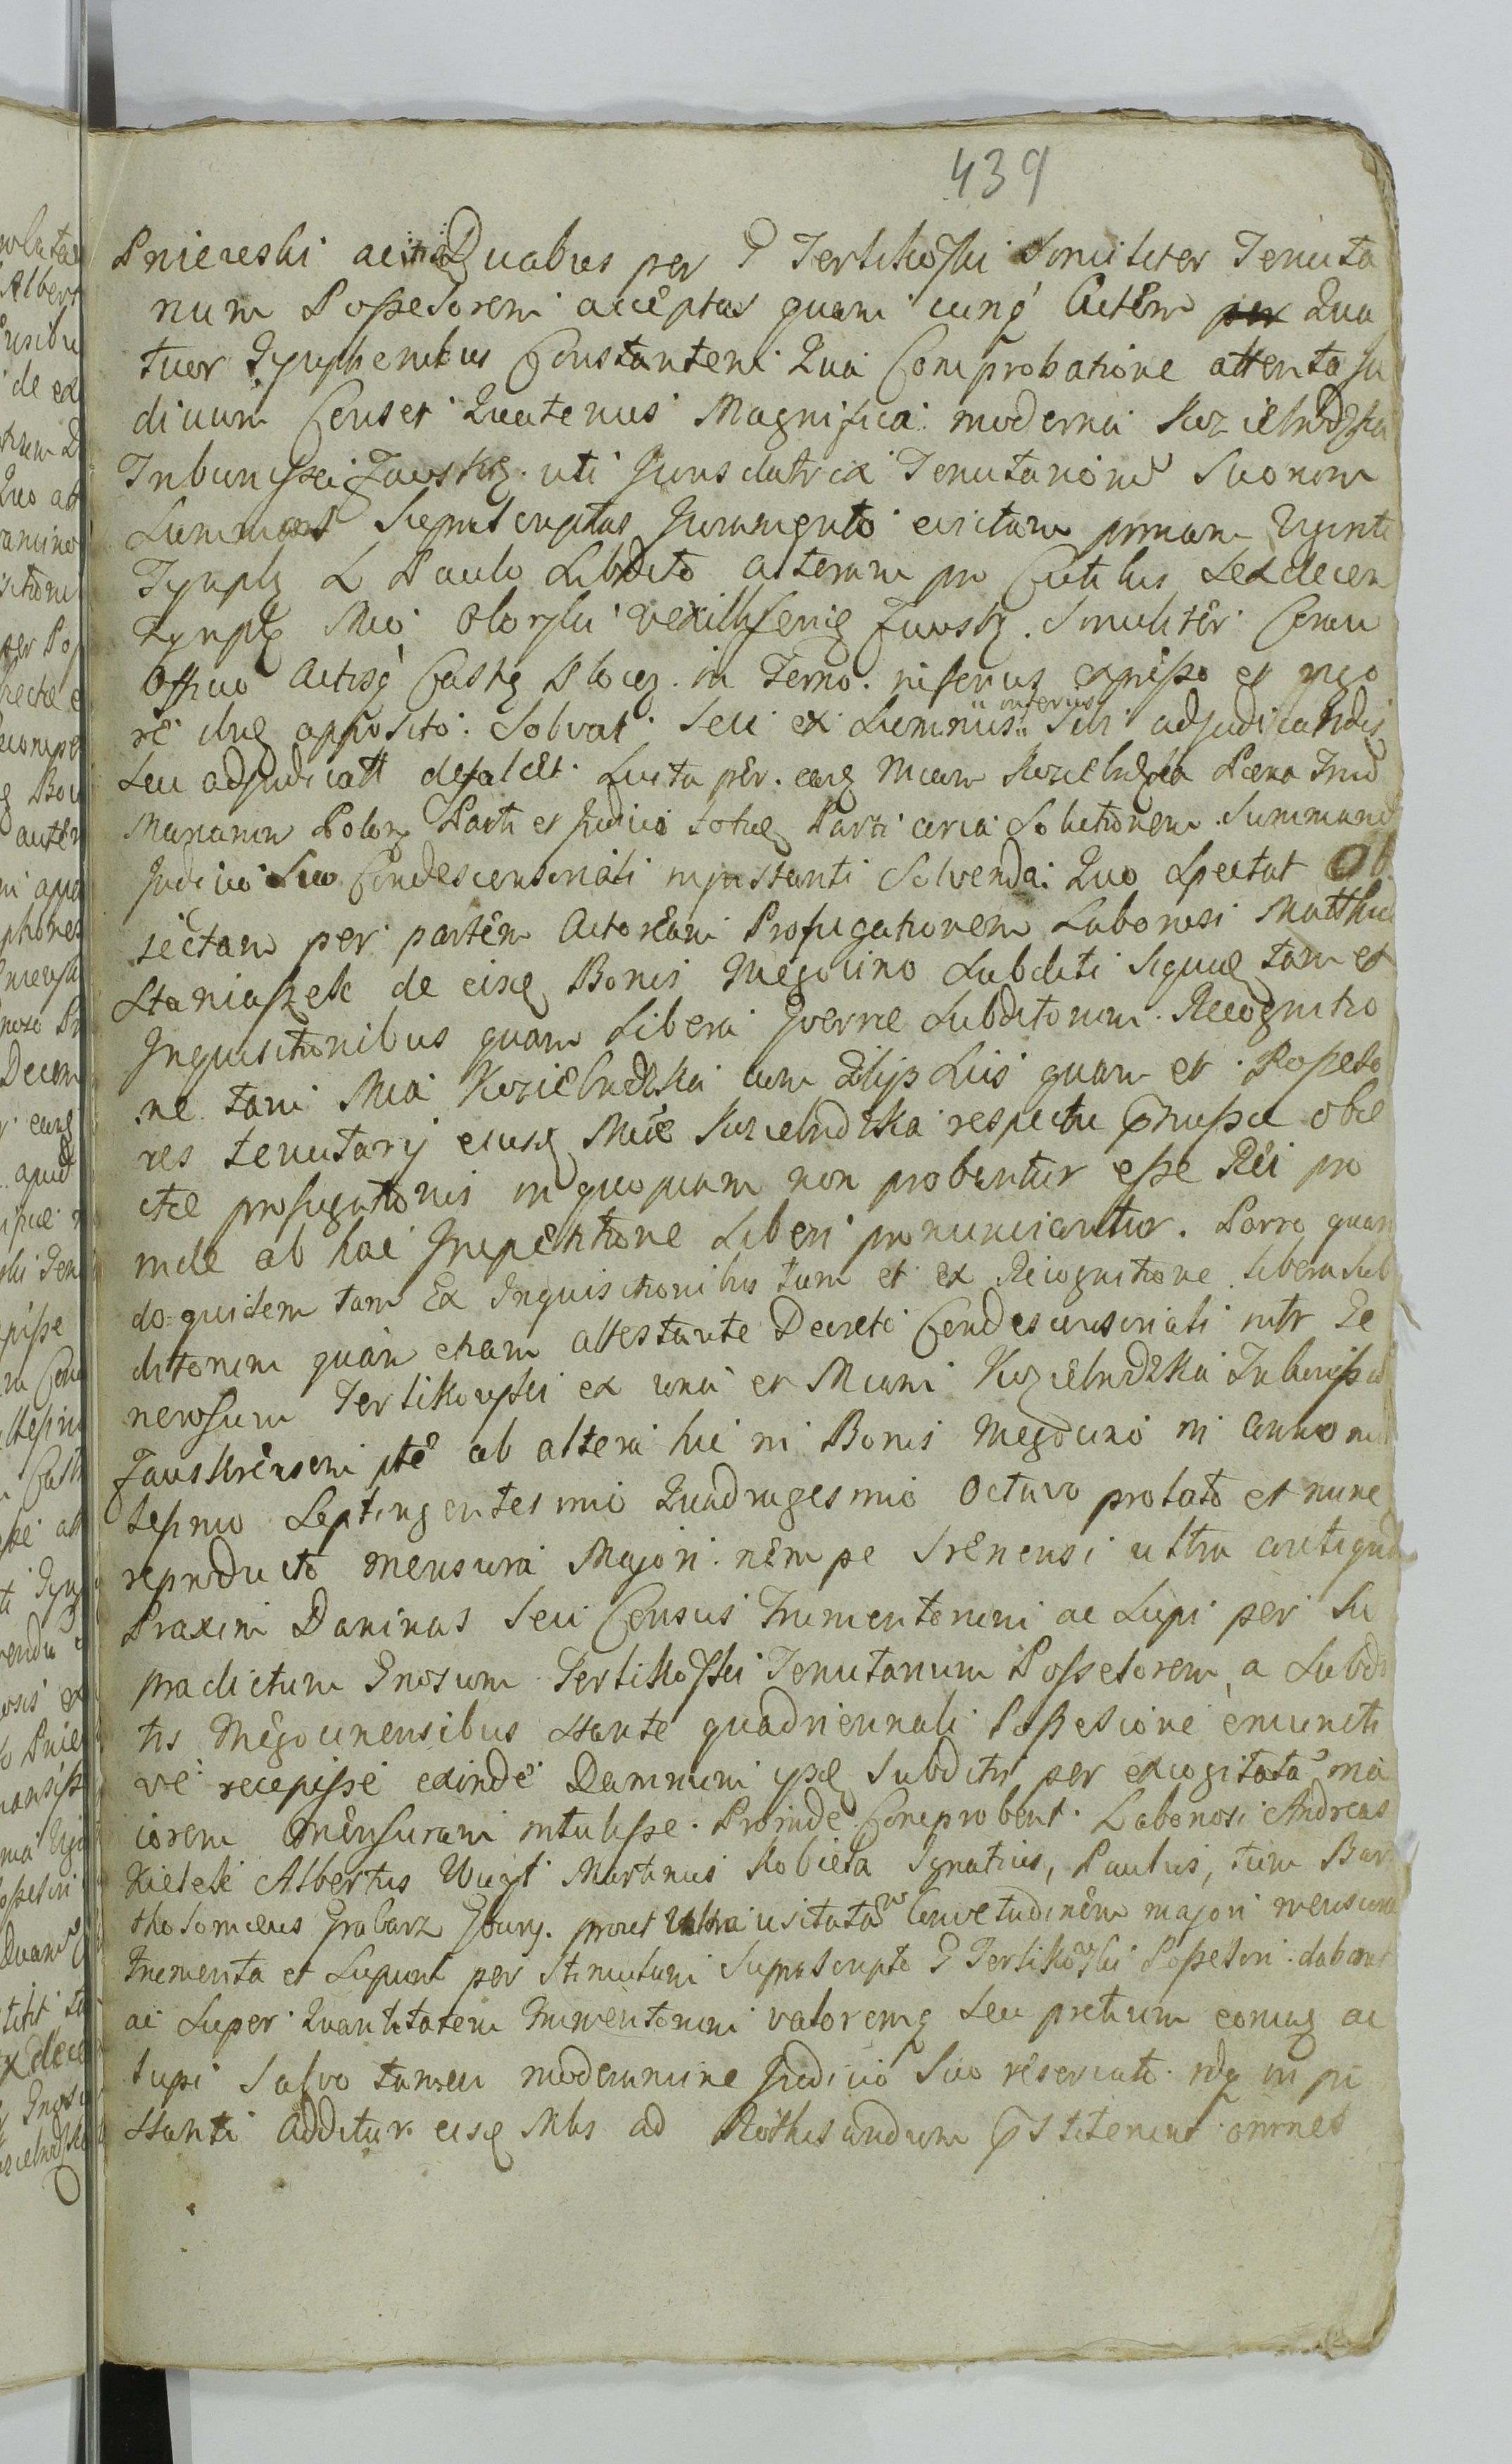 439
Pniewski ac Duabus per G Tertikowski Similiter Tenuta
rium Possesorem acceptas quamcunq Autem per Qua
tuor Tymphonibus Constantem Qua Comprobatione attenta Ju
dicium Censet Quatenus Magnifica moderna Koziebrodzka
Tribunissa uti Jurisdatrix Tenutariorum Suorum
Summas Suprascriptas Juramento evictam primam Viginti
Tymph L Paulo Subdito alteram pro Cutibus Sexdecem
Tymph Mco Olorski Vexillifero Similiter Coram
Officio Actisq Castr Ploc in Termo inferius expresso et rigo
re appositio Solvat Seu ex Summis inferius Sibi adjudicandis
Seu adjudicatt defalcet Luita per Mcam Kozielrodzka Pæna Trium
Marcarum Polon Parti et Judicio totie Parti circa Solutionem Summarum
Judicio Suo Condescensoriali in praestanti Solvenda. Quo Spectat Ob
jectam per partem Actoream Profugationem Laboriosi Matthiæ
Staniaszek de eisd Bonis Męgocino Subditi Siquid tam ex
Inquisitionibus quam Libera Subditorum Recognitio
ne tam Mca Koziebrodzka cum Filijs Suis quam et Possesso
res tenutarij eiusd Mcæ Kozielrodzka respectu obie
ctæ profugationis in quopiam non probantur esse Rei pro
inde ab hac Impetitione Liberi pronunciantur. Porro quan
do-quidem tam Ex Inquisitionibus tum et ex Recognitione libera Sub
ditorum quam etiam attestante Decreto Condescensoriali intr Ge
nerosum Tertikowski ex una et Mcam Kozielrodzka Tribunissa
ab altera hic in Bonis Męgocino in Anno mil
lesimo Septingentesimo Quadragesimo Octavo prolato et nunc
reproducto mensura Majori nempe Srenensi ultra antiquam
Praxim Daninas Seu Census Frumentorum ac Lupi per Su
pradictum Gnosum Tertikowski Tenutarium Possesorem, a Subdi
tis Męgocinensibus Stante quadriennali Possesione
ve recepisse exinde Damnum ipse Subditis per excogitatã ma
iorem Mensuram intulisse. Proinde Comprobent Laboriosi Andreas
Kielek Albertus Woyt Martinus Kobiela Ignatius, Paulus, tum Bar
tholomæus Grabarz prout Ultra usitatam Consvetudinem majori mensura
Frumenta et Lupum per Suprascripto G Tertikowski Possesori dabant
ac Super Quantitatem Frumentorum valoremq Seu pretium eorund ac
lupi Salvo tamen moderamine Judicio Suo reservato in præ
stanti additur eisd Mbs ad omnes